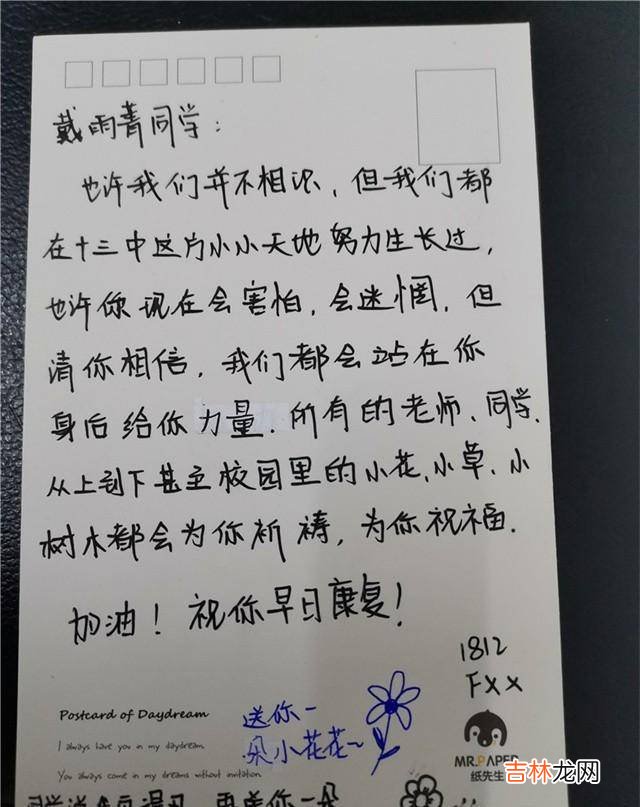 戴雨菁同学：
也许我们并不相识，但我们都
在十三中这片小小天地努力生长过，
也许你现在会害怕，会迷惘，但
请你相信，我们都会站在你
身后给你力量．所有的老师、同学、
从上到下甚至校园里的小花、小草、小
树木都会为你祈祷，为你祝福．
加油！祝你早日康复！
1812
FXX
送你一
朵小花花~
Postcard of Daydream
I always have you in my daydream.
You always come in my dreams without invitation.
MR.PAPER
纸先生
再送你一朵
吉林龙网